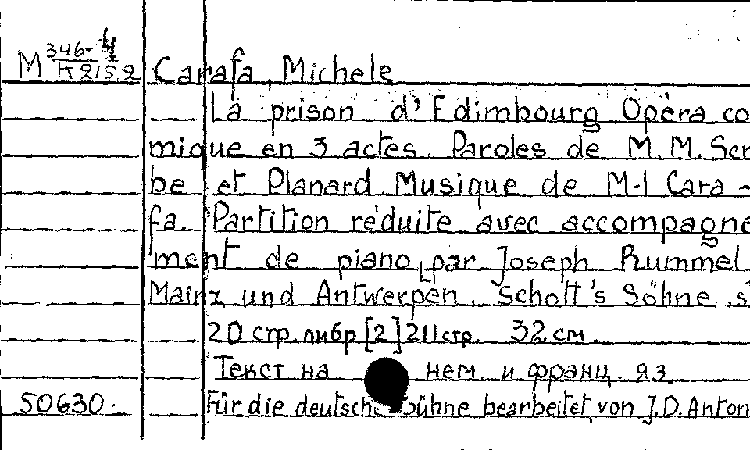 M 346-4
K 215.2 Carafa, Michele
La prison d'Edimbourg Opéra co
mique en 3 actes. Paroles de M.M. Scri
be et Planard Musique de M-l Cara-
fa. Partition réduite avec accompagne
ment de piano par Joseph Rummel
Mainz und Antwerpen, Schott's Söhne s
20 стр. либр [2] 211 стр. 32 см
Текст на нем. и франц. яз.
50630. Für die deutsche Bühne bearbeitet von J.D. Anton